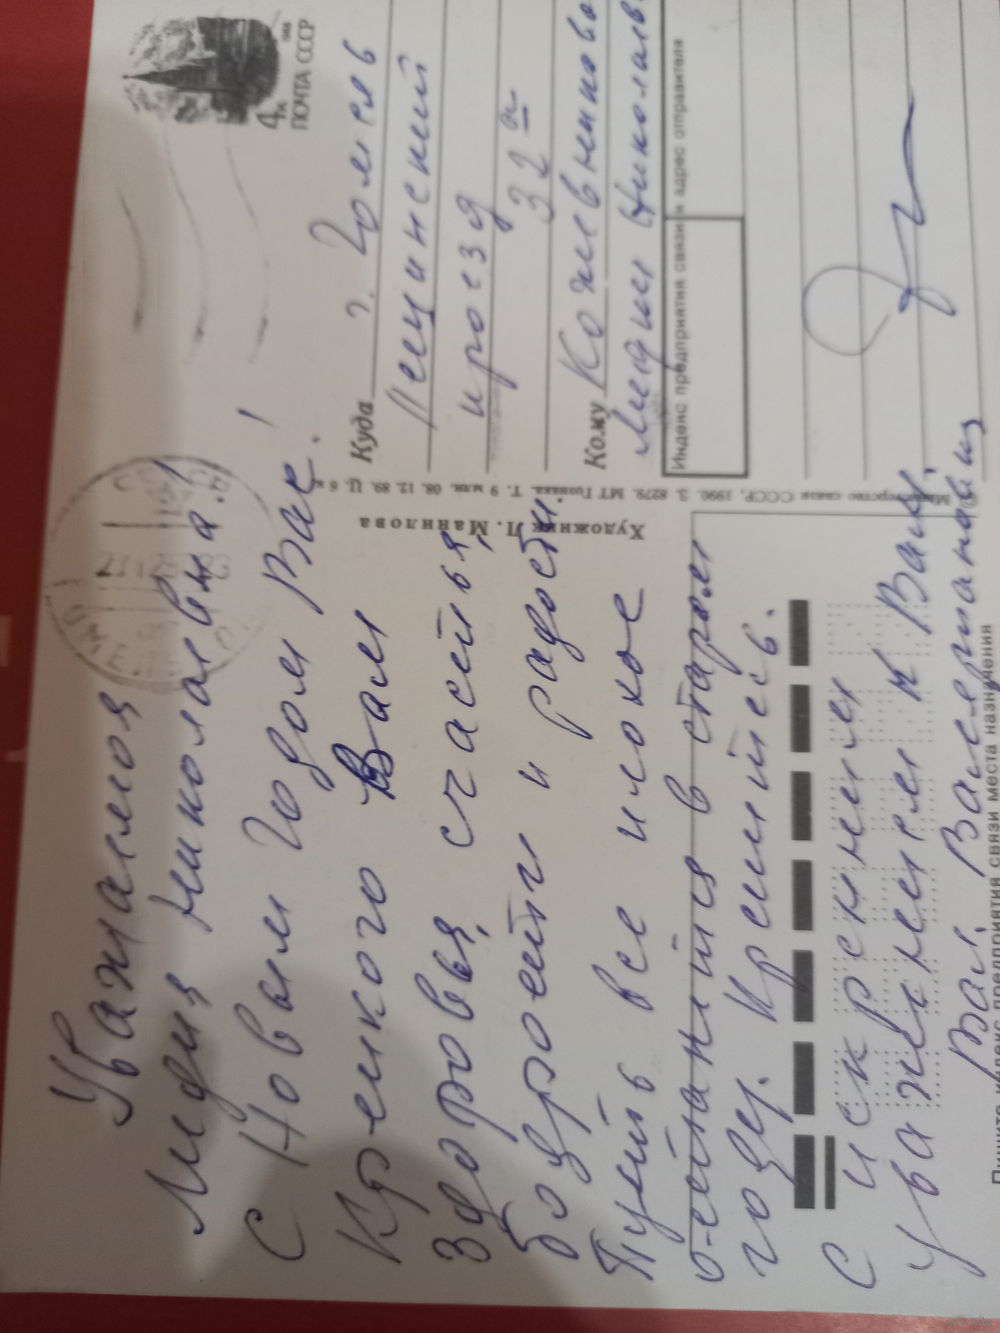 Уважаемая
Лидия Николаевна!
С Новым Годом Вас!
Крепкого Вам
здоровья, счастья,
бодрости и радости.
Пусть все плохое
останится в старом
году. Крепитесь.
С искренним
уважением к Вам,
Ваш Валериан
4к
1988
ПОЧТА СССР
Куда г. Гомель
проезд
32а
Кому Кожевниковой
Лидии Николаевне
Индекс предприятия связи и адрес отправителя
Министерство связи СССР, 1990. З. 8279. МТ Гознака. Т. 9 млн. 08. 12. 89. Ц. 6 к.
Художник Л. Манилова
Пишите индекс предприятия связи места назначения